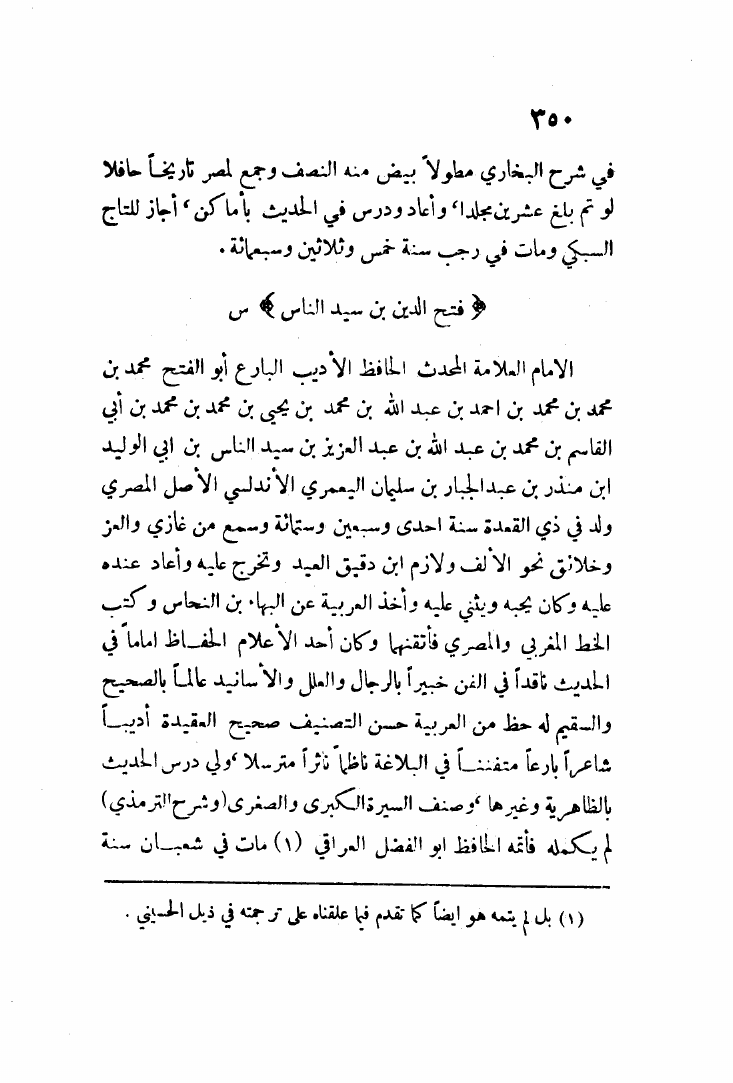 ٣٥٠
في شرح البخاري مطولاً بيض منه النصف وجمع لمصر تاريخاً حافلا
لو تم بلغ عشرين مجلدا، وأعاد ودرس في الحديث بأماكن، أجاز للتاج
السبكي ومات في رجب سنة خمس وثلاثين وسبعمائة .
﴿ فتح الدين بن سيد الناس ﴾ س
الامام العلامة المحدث الحافظ الأديب البارع أبو الفتح محمد بن
محمد بن محمد بن احمد بن عبد الله بن محمد بن يحيى بن محمد بن محمد بن أبي
القاسم بن محمد بن عبد الله بن عبد العزيز بن سيد الناس بن ابي الوليد
ابن منذر بن عبد الجبار بن سليمان اليعمري الأندلسي الأصل المصري
ولد في ذي القعدة سنة احدى وسبعين وستمائة وسمع من غازي والعز
وخلائق نحو الألف ولازم ابن دقيق العيد وتخرج عليه وأعاد عنده
عليه وكان يحبه ويثني عليه وأخذ العربية عن البهاء بن النحاس وكتب
الخط المغربي والمصري فأتقنها وكان أحد الأعلام الحفاظ اماماً في
الحديث ناقداً في الفن خبيراً بالرجال والعلل والأسانيد عالماً بالصحيح
والسقيم له حظ من العربية حسن التصنيف صحيح العقيدة أديباً
شاعراً بارعاً متفنناً في البلاغة ناظماً ناثراً مترسلا، ولي درس الحديث
بالظاهرية وغيرها، وصنف السيرة الكبرى والصغرى (وشرح الترمذي)
لم يكمله فأتمه الحافظ ابو الفضل العراقي (١) مات في شعبان سنة
(١) بل لم يتمه هو ايضاً كما تقدم فيما علقناه على ترجمته في ذيل الحسيني .